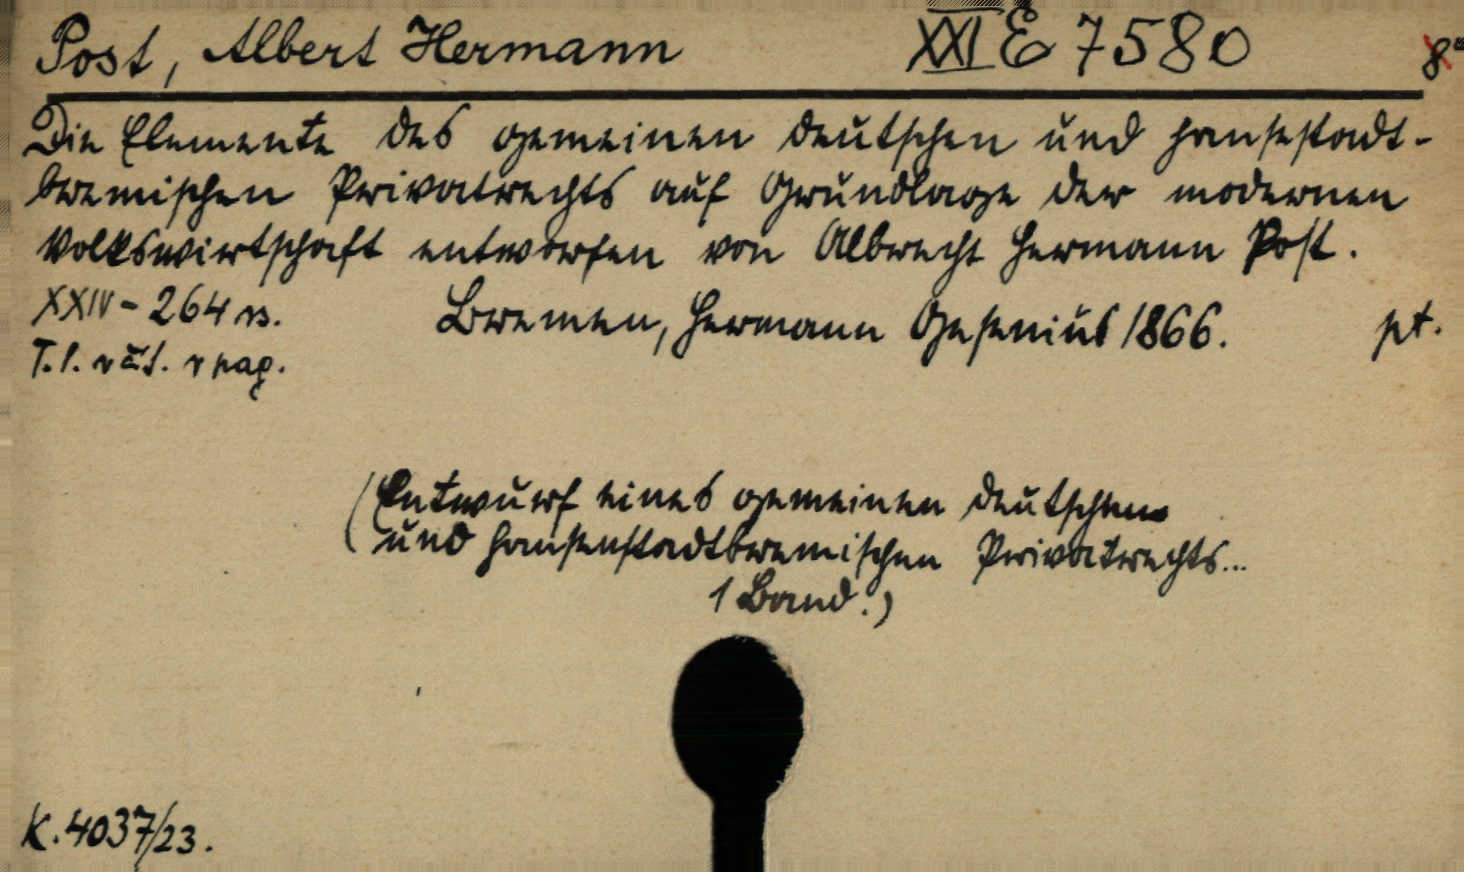 Post, Albert Hermann XXI E 7580 8°
Die Elemente des gemeinen deutschen und hansestadt-
bremischen Privatrechts auf Grundlage der modernen
Volkswirtschaft entworfen von Albrecht Hermann Post.
XXIV - 264 s. Bremen, Hermann Gesenius 1866. pt.
T. l. pag.
(Entwurf eines gemeinen deutschen
und hansenstadtbremischen Privatrechts...
1 Band.)
K. 4037/23.